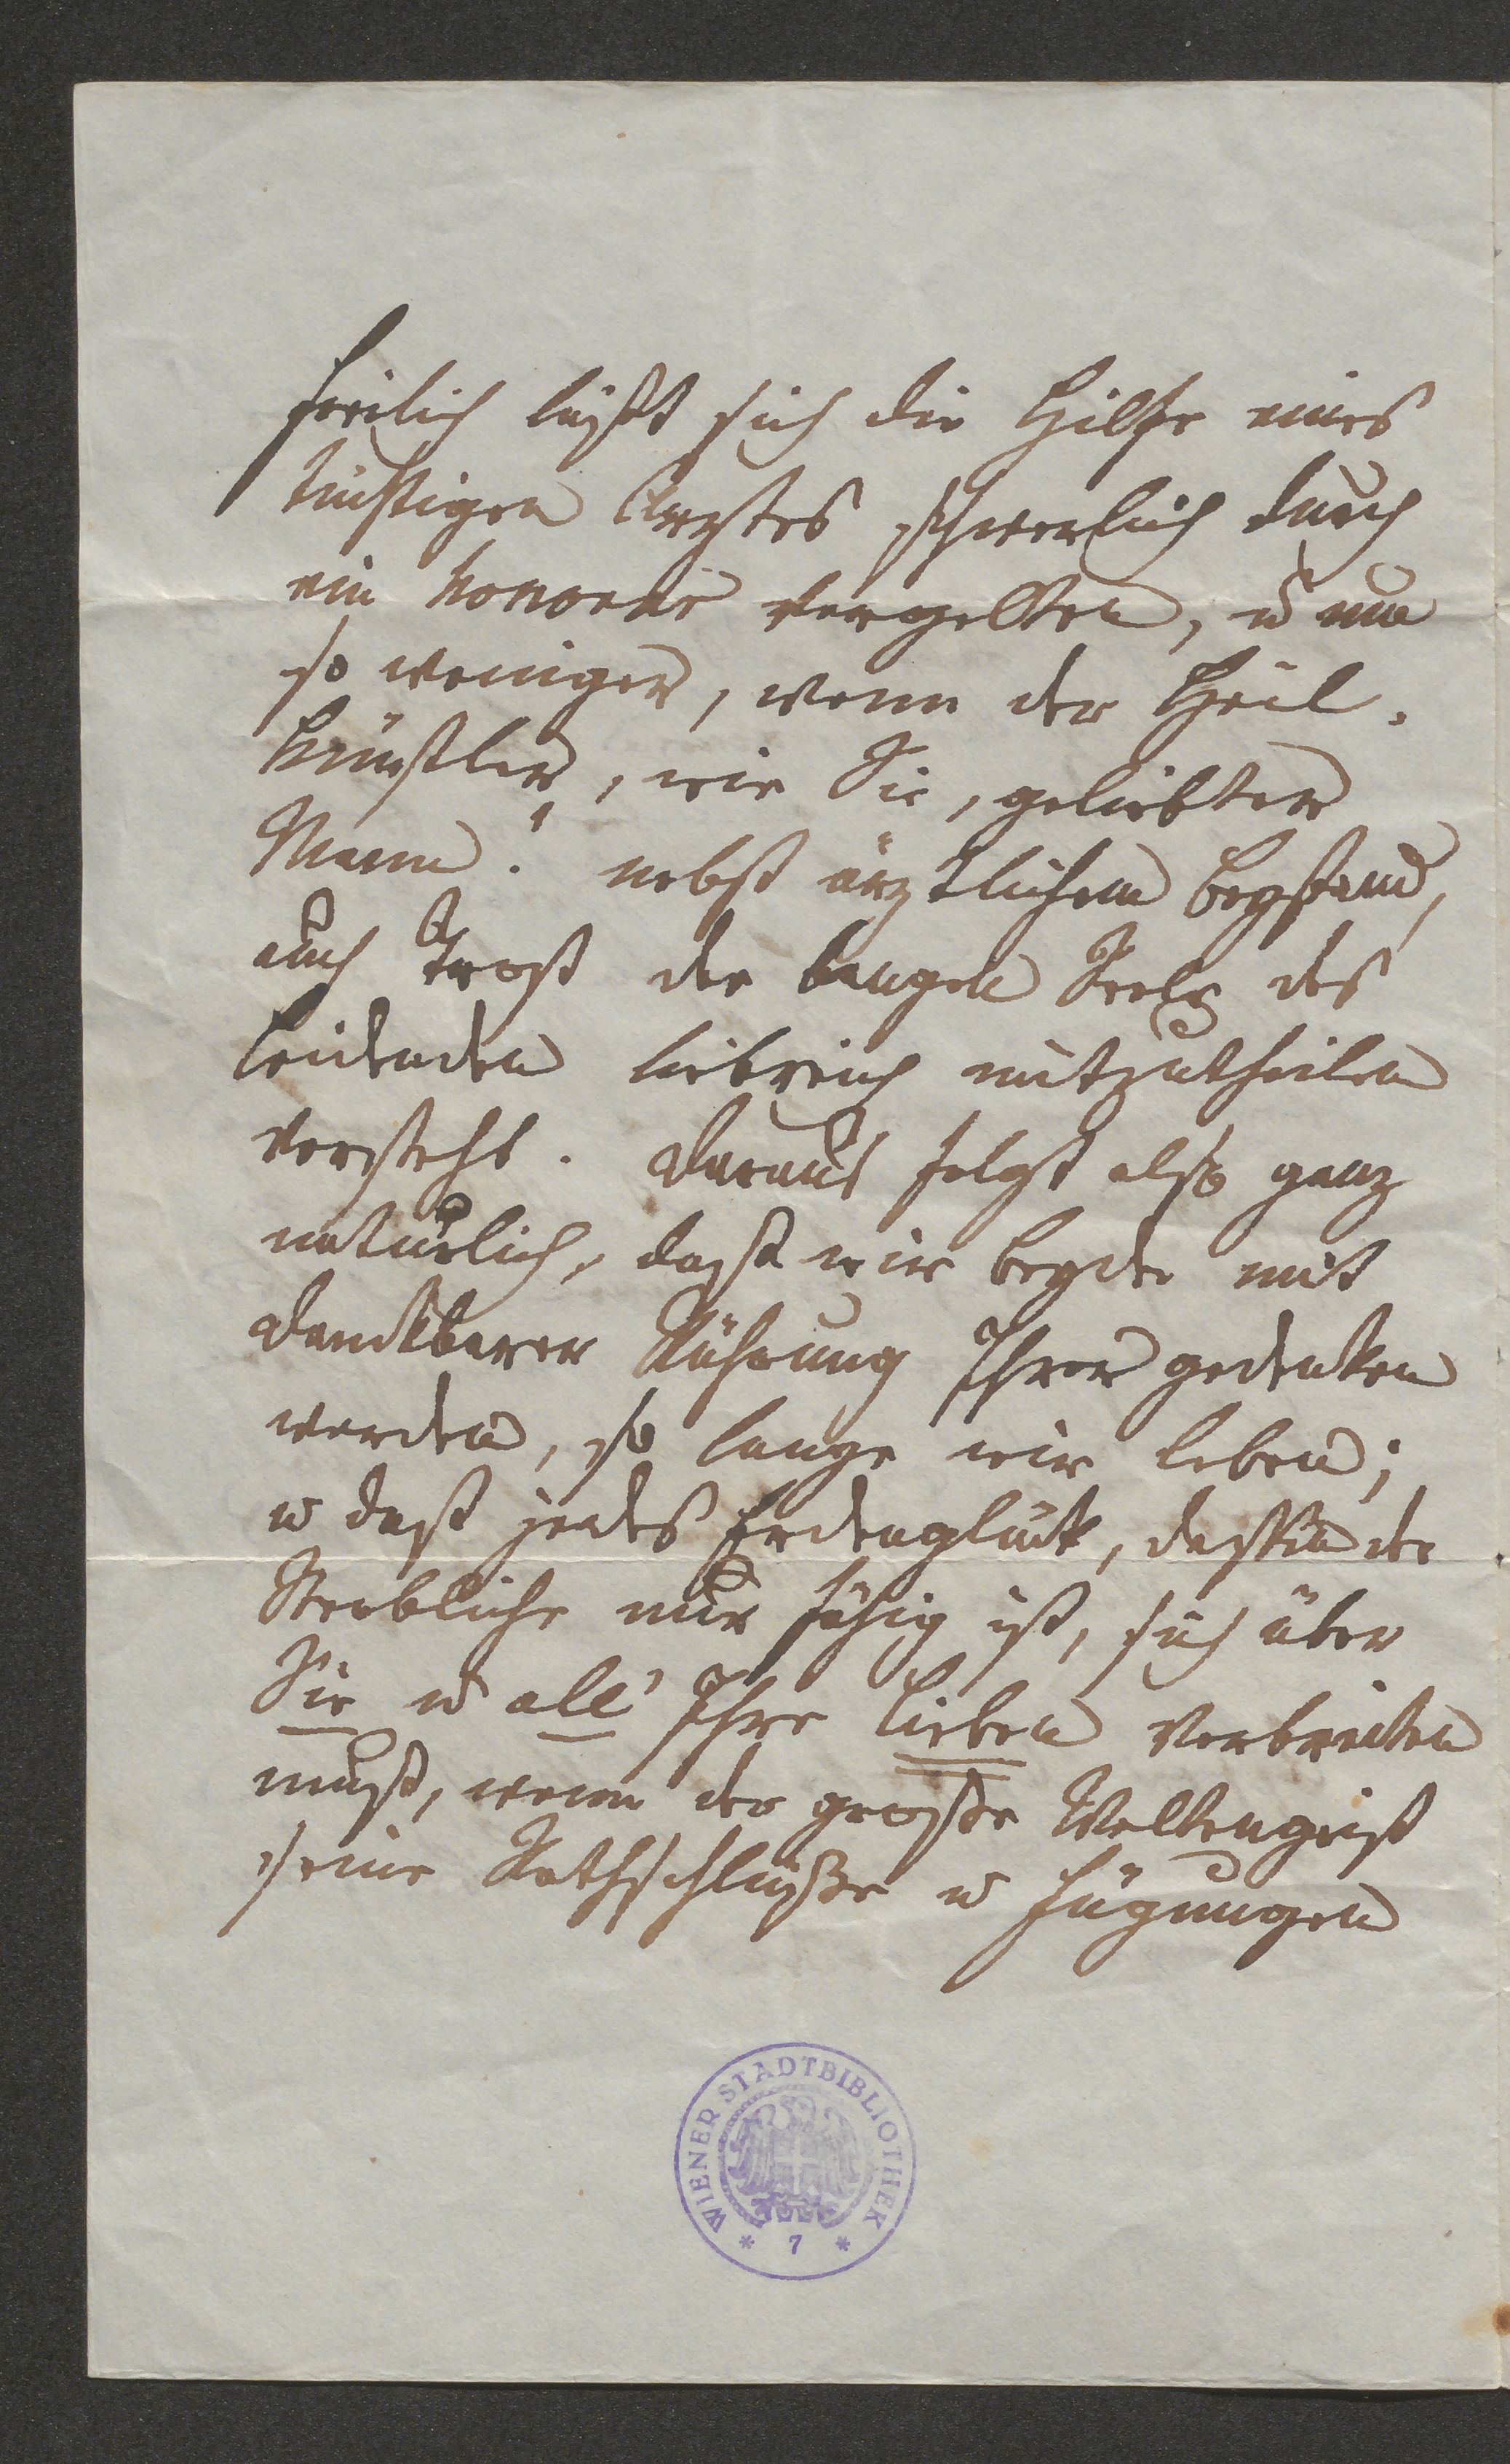 Freilich läßt sich die Hilfe eines
tüchtigen Arztes schwerlich durch
ein honorar vergelten, u um
so weniger, wenn der Heil-
künstler, wie Sie, geliebter
Mann! nebst ärztlichem Beystand,
auch Trost der bangen Seele des
Leidenden liebreich mitzutheilen
versteht. Daraus folgt also ganz
natürlich, daß wir beyde mit
dankbarer Rührung Ihrer gedenken
werden, so lange wir leben;
u daß jedes Erdenglück, deßen der
Sterbliche nur fähig ist, sich über
Sie u all' Ihre Lieben verbreiten
muß, wenn der große Weltengeist
seine Rathschlüße u Fügungen
WIENER STADTBIBLIOTHEK
* 7 *